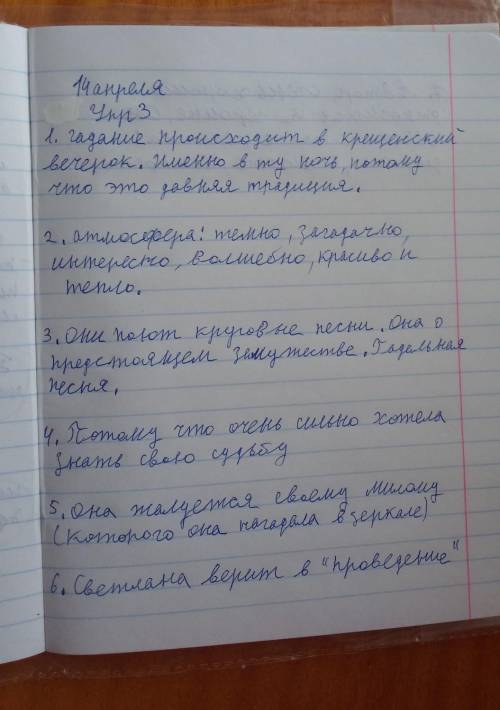 14 апреля
Упр 3
1. гадание происходит в крещенский
вечерок. Именно в ту ночь, потому
что это давняя традиция.
2. атмосфера: темно, загадачно,
интересно, волшебно, красиво и
тепло.
3. Они поют круговые песни. Она о
предстоящем замужестве. Гадельная
песня.
4. Потому что очень сильно хотела
знать свою судьбу
5. Она жалуется своему милому
(которого она нагадала в зеркале)
6. Светлана верит в "проведение"